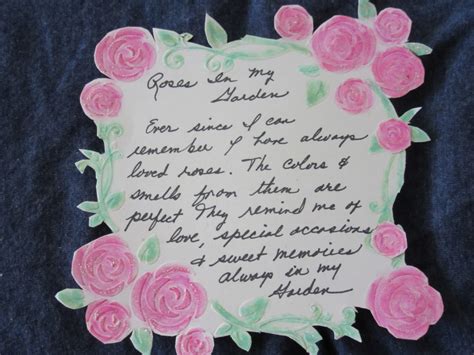 Roses In my
Garden
Ever since I can
remember I have always
loved roses. The colors &
smells from them are
perfect They remind me of
love, special occasions
& sweet memories
always in my
Garden